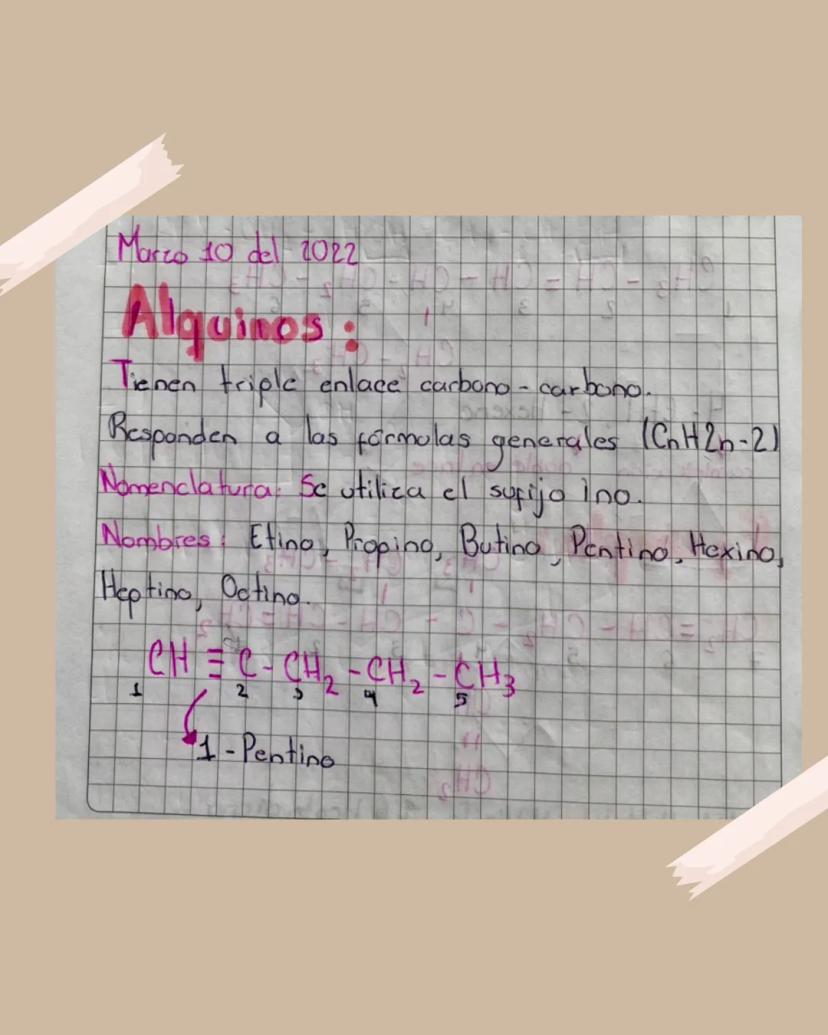 Marzo 10 del 2022
Alquinos:
Tienen triple enlace carbono-carbono.
Responden a las fórmulas generales (CnH2n-2)
Nomenclatura: Se utiliza el sufijo ino.
Nombres: Etino, Propino, Butino, Pentino, Hexino,
Heptino, Octino.
CH ≡ C - CH2 - CH2 - CH3
1 2 3 4 5
1-Pentino